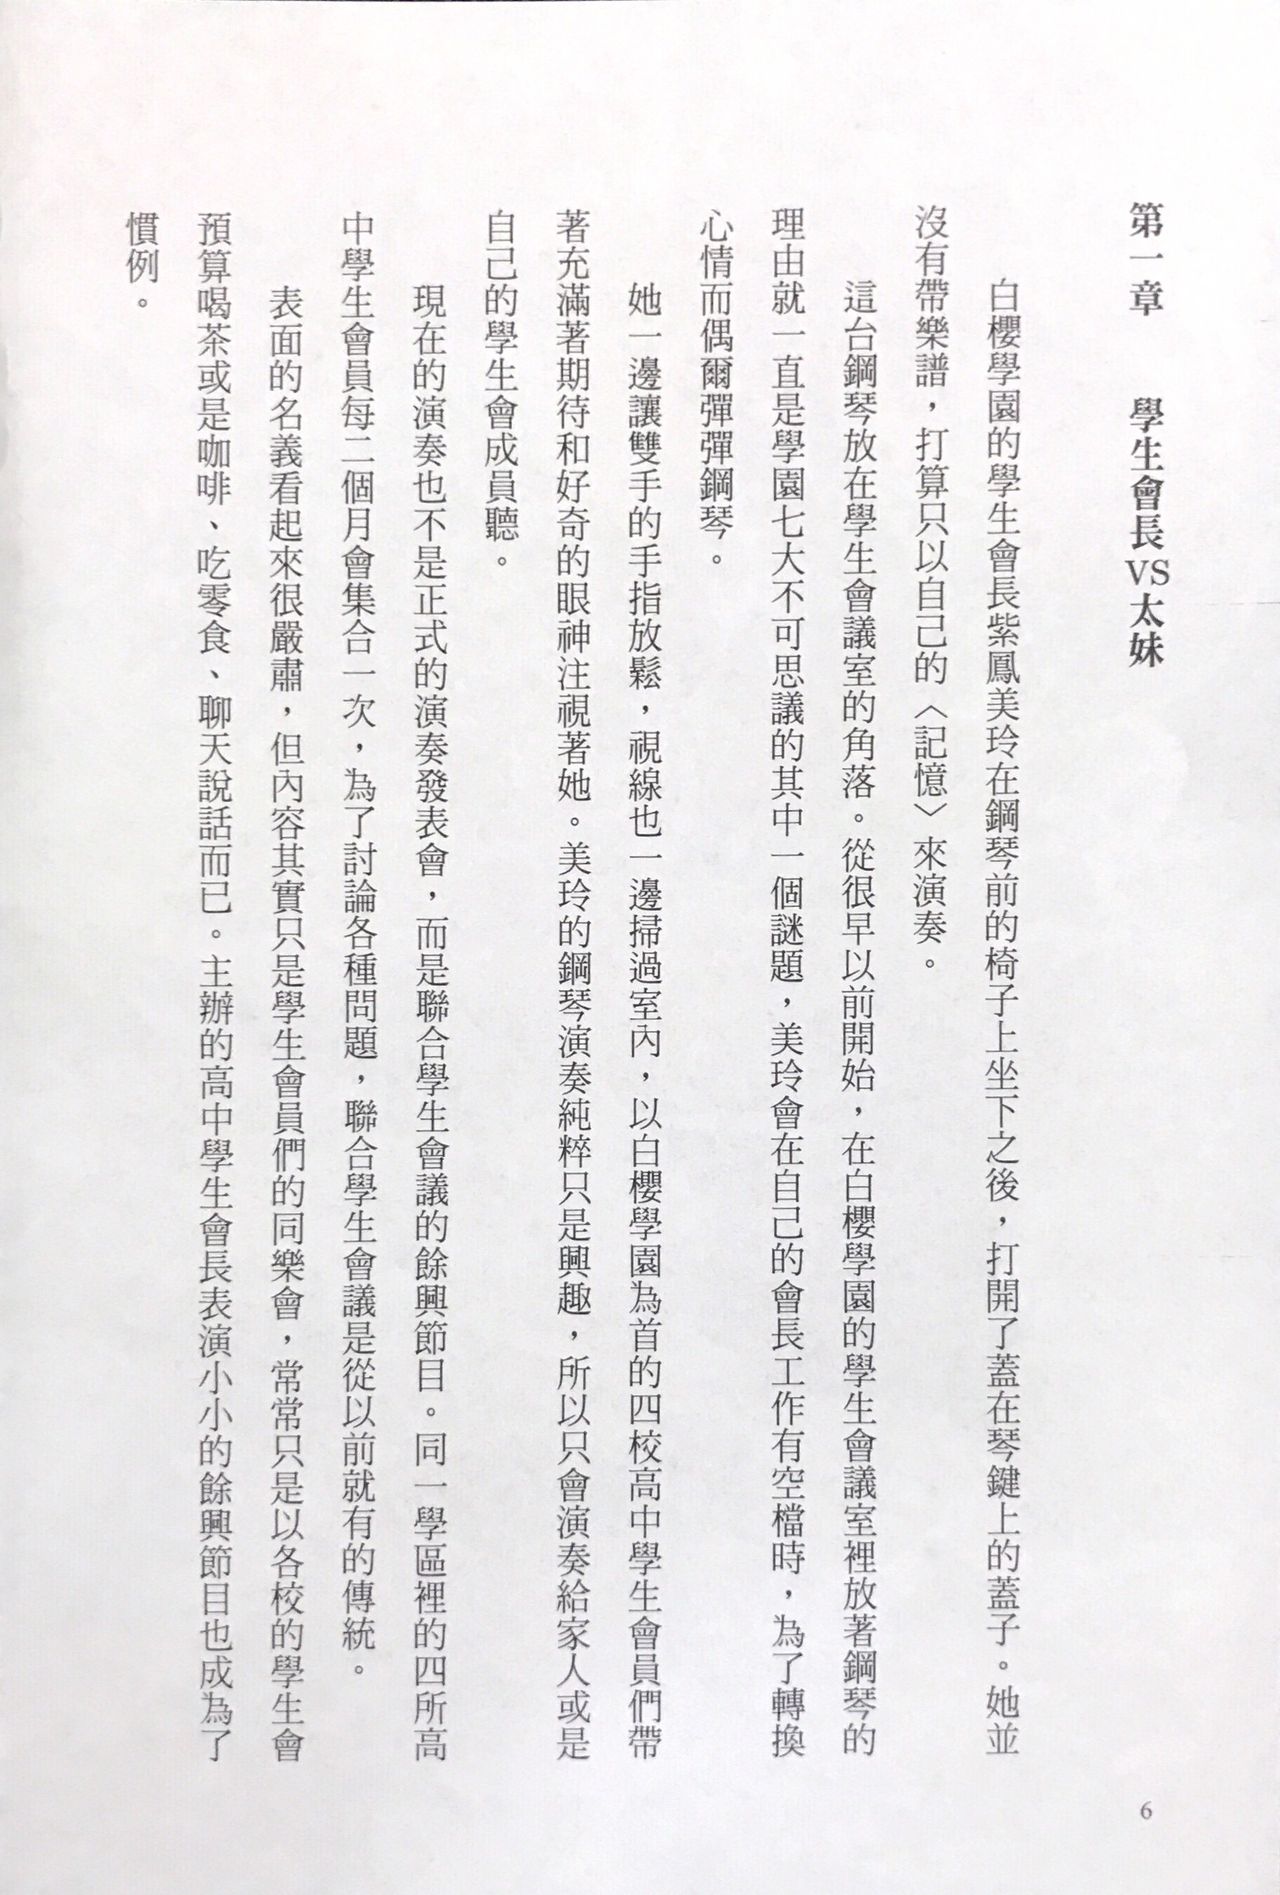 第一章　學生會長VS太妹
白櫻學園的學生會長紫鳳美玲在鋼琴前的椅子上坐下之後，打開了蓋在琴鍵上的蓋子。她並
沒有帶樂譜，打算只以自己的〈記憶〉來演奏。
這台鋼琴放在學生會議室的角落。從很早以前開始，在白櫻學園的學生會議室裡放著鋼琴的
理由就一直是學園七大不可思議的其中一個謎題，美玲會在自己的會長工作有空檔時，為了轉換
心情而偶爾彈彈鋼琴。
她一邊讓雙手的手指放鬆，視線也一邊掃過室內，以白櫻學園為首的四校高中學生會員們帶
著充滿著期待和好奇的眼神注視著她。美玲的鋼琴演奏純粹只是興趣，所以只會演奏給家人或是
自己的學生會成員聽。
現在的演奏也不是正式的演奏發表會，而是聯合學生會議的餘興節目。同一學區裡的四所高
中學生會員每二個月會集合一次，為了討論各種問題，聯合學生會議是從以前就有的傳統。
表面的名義看起來很嚴肅，但內容其實只是學生會員們的同樂會，常常只是以各校的學生會
預算喝茶或是咖啡、吃零食、聊天說話而已。主辦的高中學生會長表演小小的餘興節目也成為了
慣例。
6